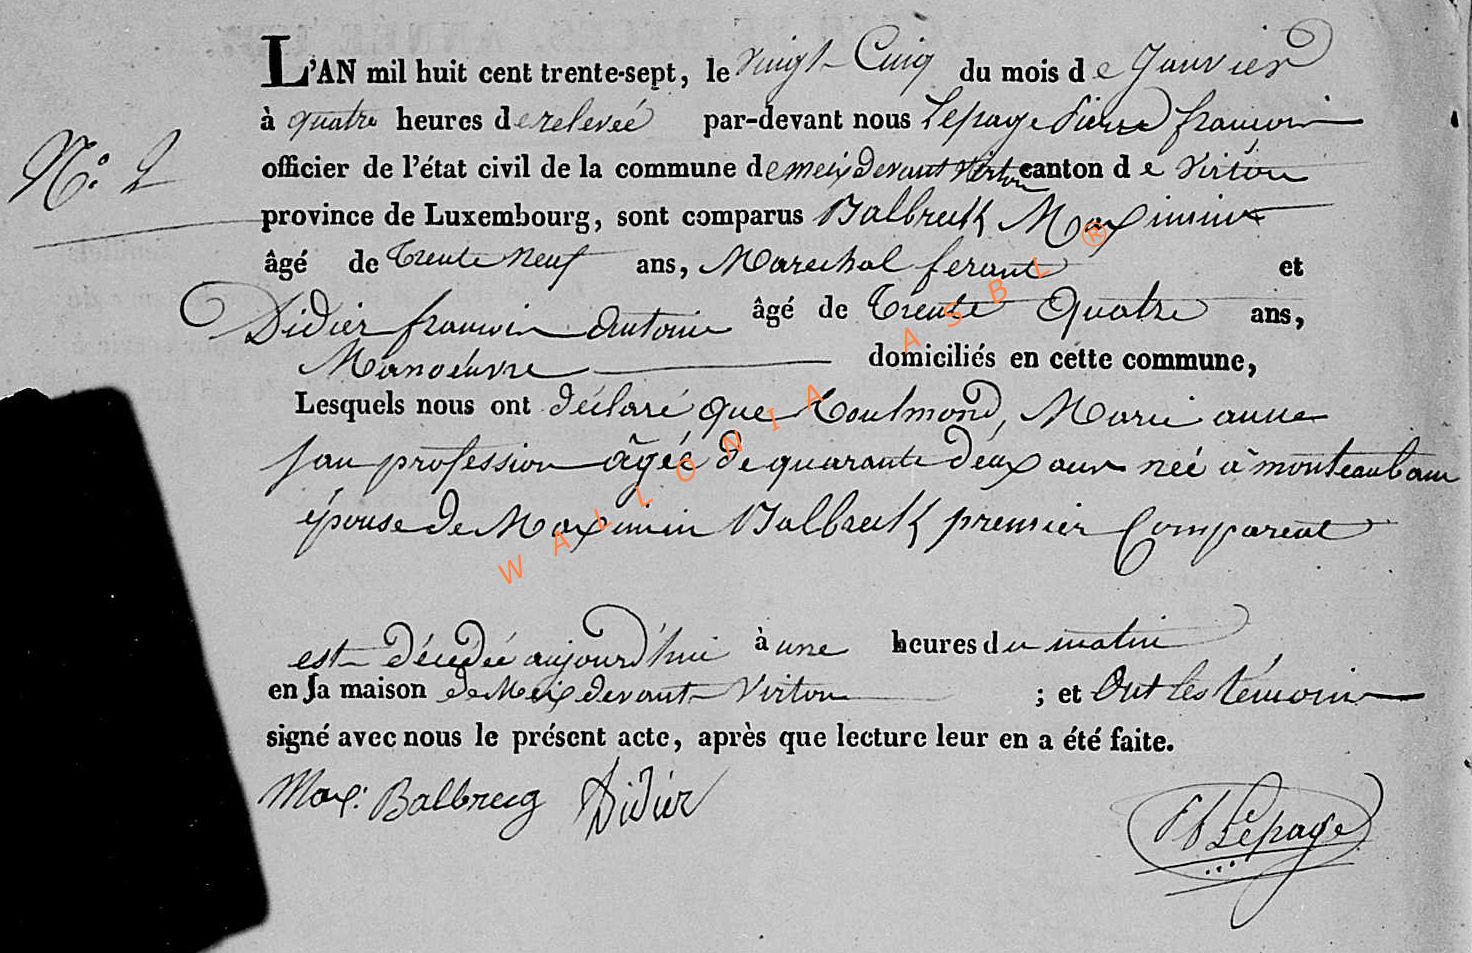 L'AN mil huit cent trente-sept, le vingt Cinq du mois de Janvier
à quatre heures de relevée par-devant nous Lepage Pierre françois
N.° 2
officier de l'état civil de la commune de meix devant Virton canton de Virton
province de Luxembourg, sont comparus Balbreck Maximin
âgé de trente Neuf ans, Marechal ferant et
Didier françois Antoine âgé de trente Quatre ans,
Manoeuvre domiciliés en cette commune,
Lesquels nous ont déclaré que Toulmond, Marie anne
san profession âgée de quarante deux ans née à monteauban
épouse de Maximin Balbreck premier Comparent
est décédée aujourd'hui à une heures du matin
en sa maison de Meix devant Virton ; et Ont les témoins
signé avec nous le présent acte, après que lecture leur en a été faite.
Max: Balbrecq Didier Lepage
WALLONIA ASBL ®